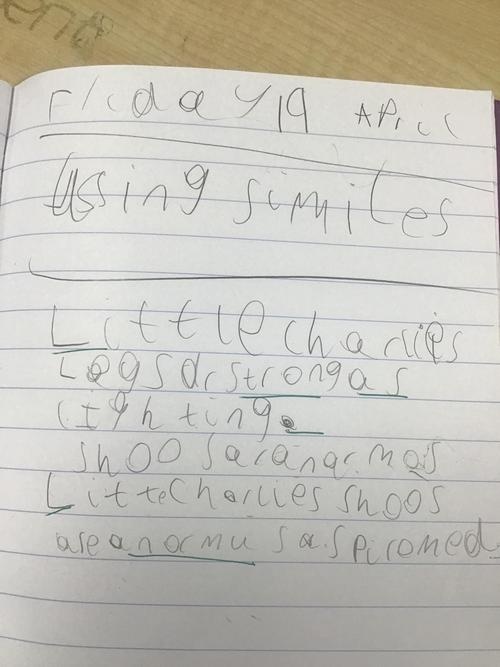 Friday 19 April
Using similes
Little charlies
Legs ar strong as
lighting.
shoos ar anarmois
Little Charlies shoos
are anormus as piromed.